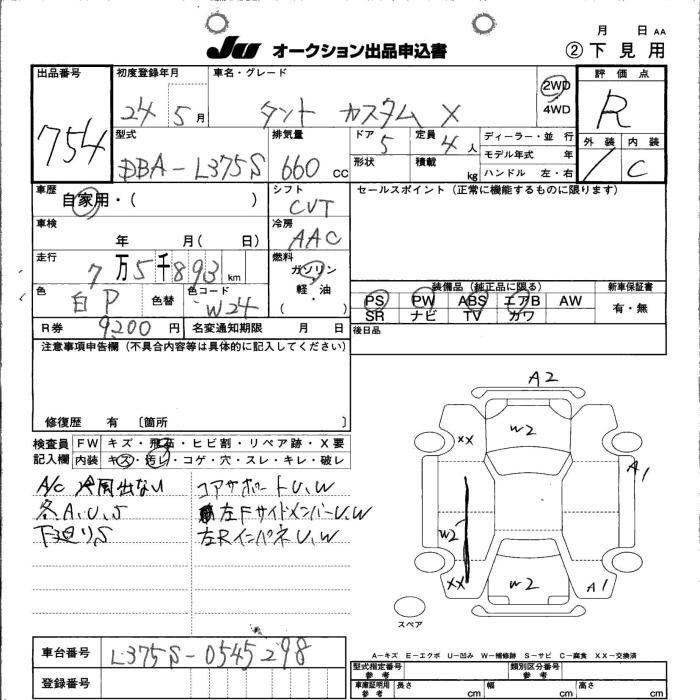 月 日 AA
JU オークション出品申込書 ② 下見用
出品番号 初度登録年月 車名・グレード 評価点
754 24 5月 タント カスタム X 2WD 4WD R
型式 排気量 ドア 定員 ディーラー・並行 外装 内装
DBA-L375S 660 cc 5 4人 モデル年式 年 1 C
形状 積載 kg ハンドル 左・右
車歴 シフト セールスポイント(正常に機能するものに限ります)
自家用・( ) CVT
車検 冷房
年 月(日) AAC
走行 燃料
7万5千893km ガソリン
軽・油
( )
色 色替 色コード
白P W24
装備品(純正品に限る) 新車保証書
PS PW ABS エアB AW 有・無
SR ナビ TV カワ
R券 9200円 名変通知期限 月 日 後日品
注意事項申告欄(不具合内容等は具体的に記入してください)
修復歴 有 〔箇所 〕
検査員 FW キズ・飛石・ヒビ割・リペア跡・X要
記入欄 内装 キズ・汚レ・コゲ・穴・スレ・キレ・破レ
A/C 冷風出ない コアサポートU,W
各A,U,S 左FサイドメンバーU,W
下廻りS 左RインパネU,W
A2
W2
XX
A1
W2
XX W2 A1
スペア
A-キズ E-エクボ U-凹み W-補修跡 S-サビ C-腐食 XX-交換済
車台番号 L375S-0545298
型式指定番号 参考 類別区分番号 参考
登録番号
車庫証明用 参考 長さ cm 幅 cm 高さ cm